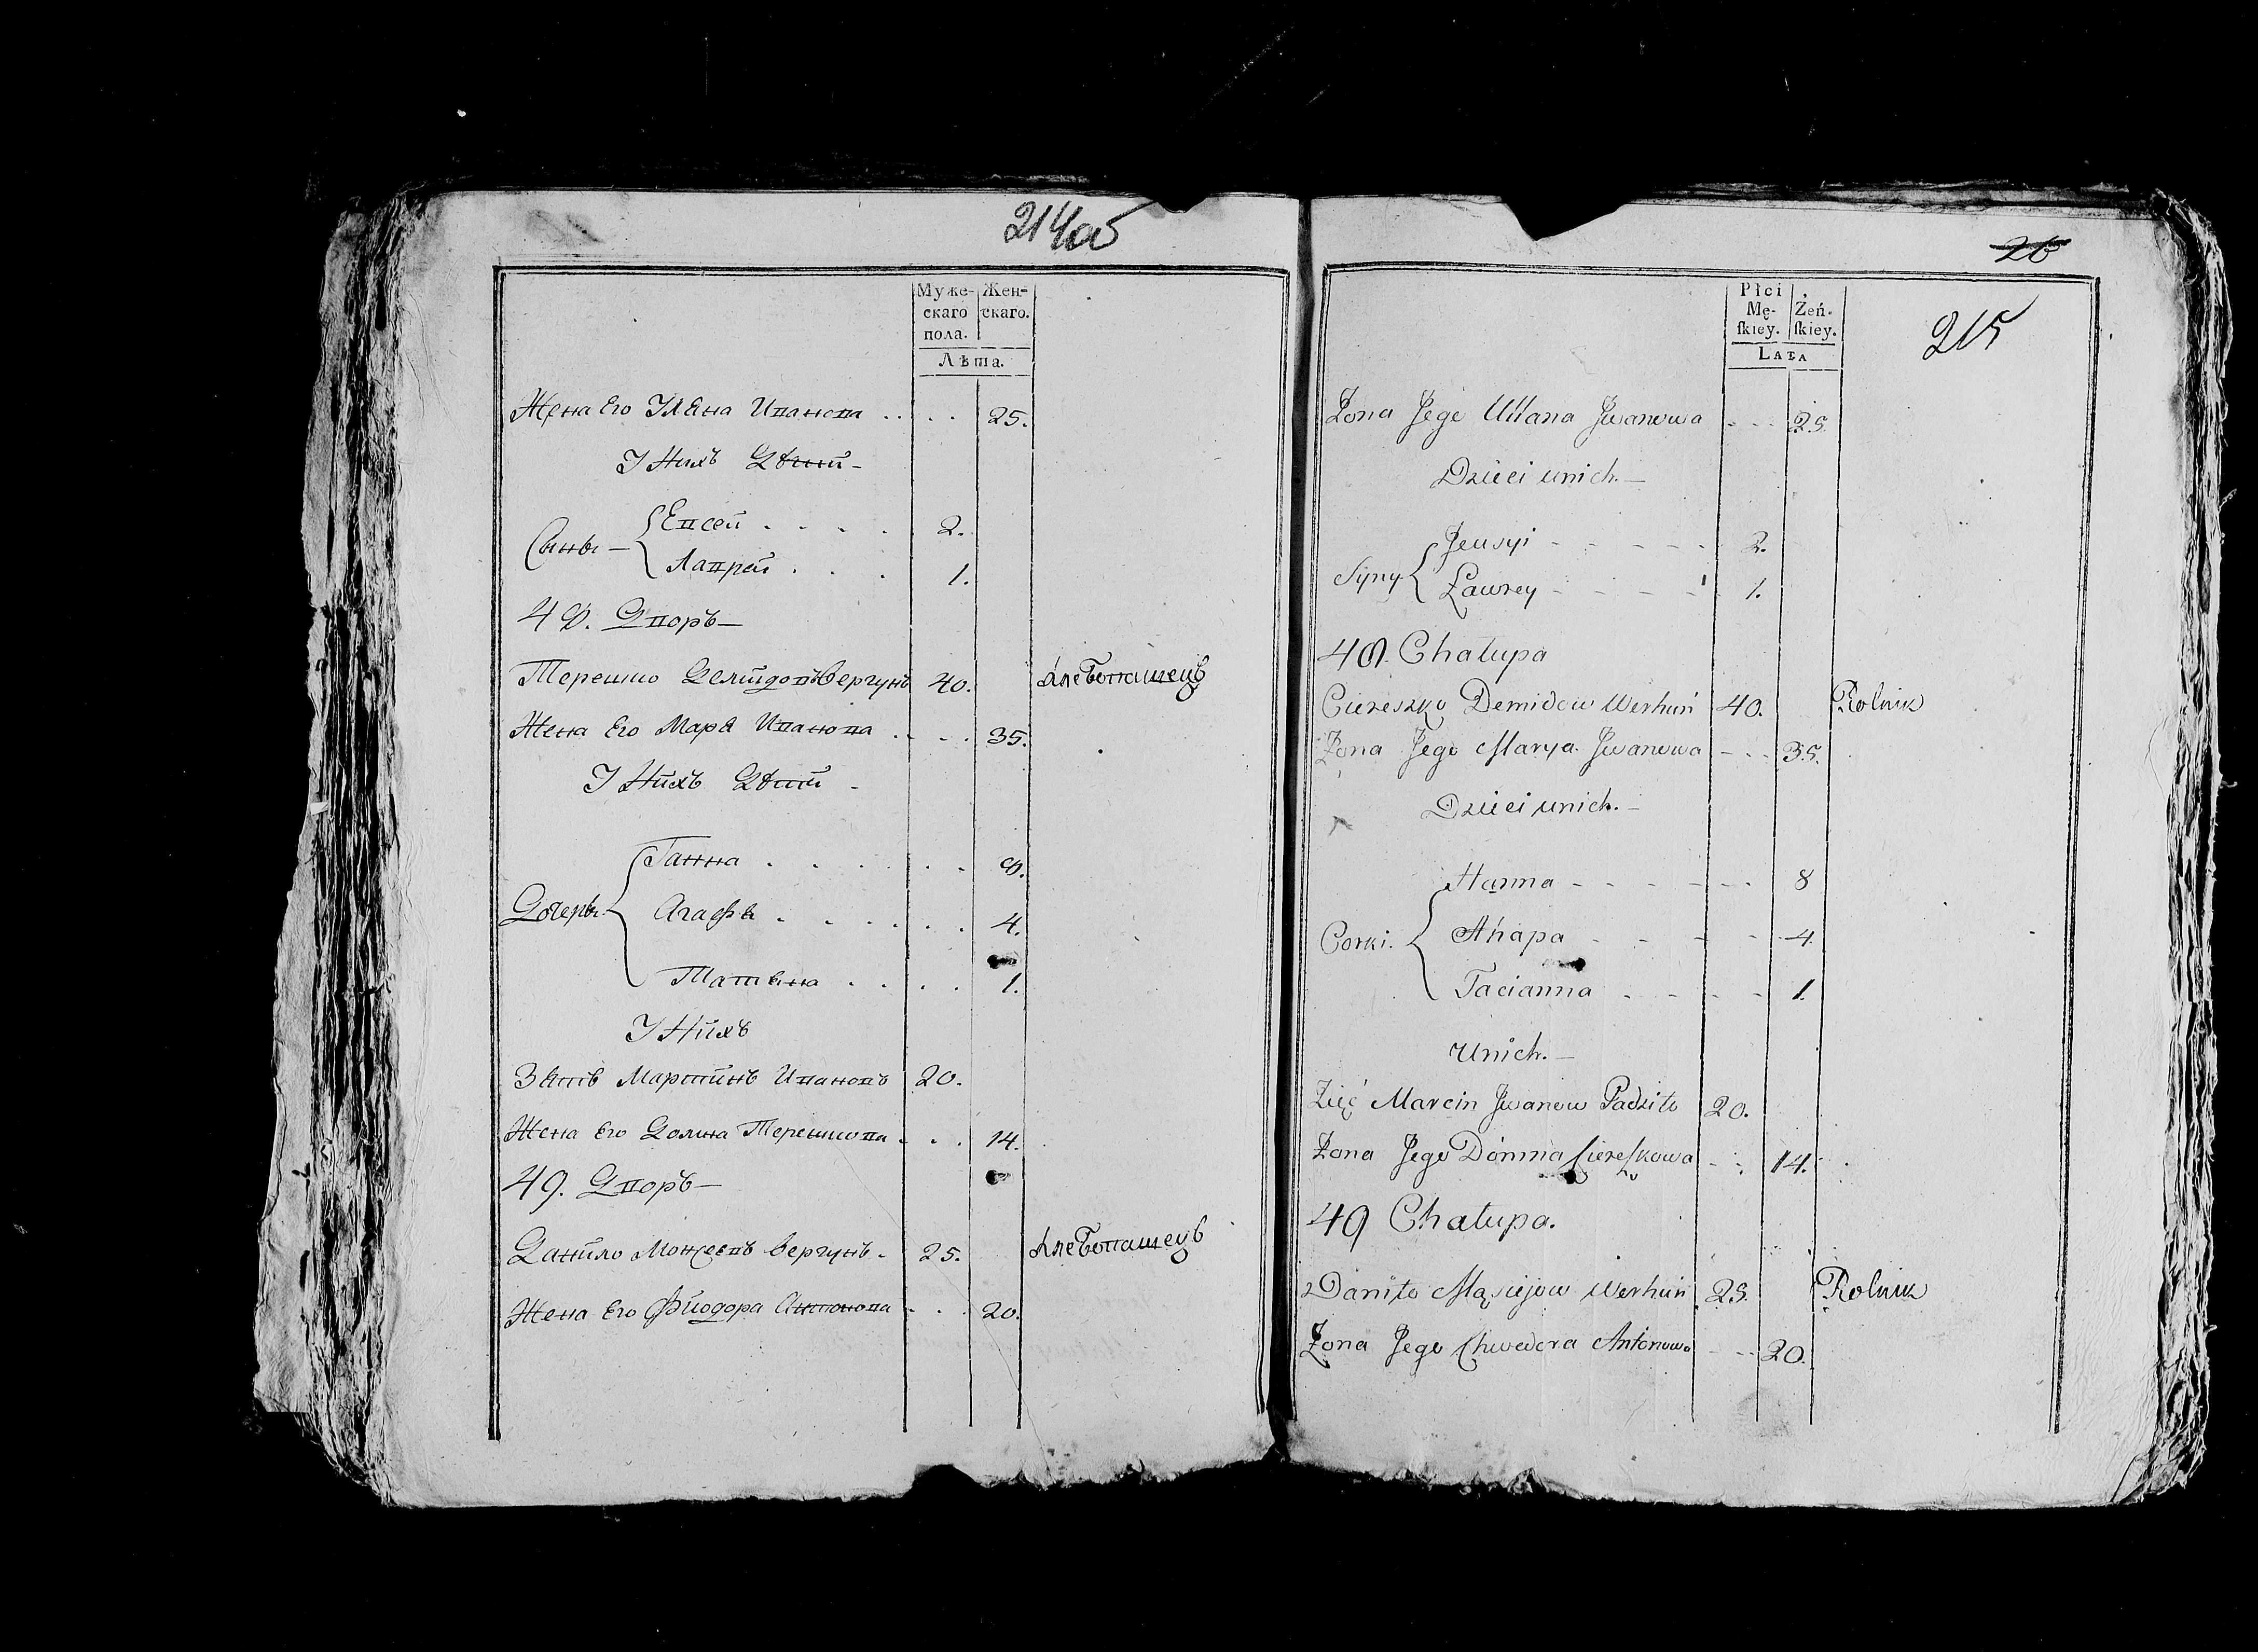 214об
Муже-
скаго
пола.
Жен-
скаго.
Лѣта.
Жена Его Уляна Иванова .. . . 25.
У Нихъ Дѣти -
Сыны -
Евсей . . . . 2.
Лаврей . . . 1.
48. Дворъ -
Терешко Демидовъ Вергунъ 40. хлебопашецъ
Жена Его Маря Иванова . . . . 35.
У Нихъ Дѣти -
Дочеры -
Ганна . . . . . . 8.
Агафя . . . . . . 4.
Татяна . . . . 1.
У Нихъ
Зять Мартинъ Ивановъ 20.
Жена Его Домна Терешкова . . . 14.
49. Дворъ -
Данило Можеевъ Вергунъ - 25. хлебопашецъ
Жена Его Фиодора Антонова . . . 20.
26
215
Płci
Mę-
ſkiey.
Żeń-
ſkiey.
Lata
Żona Jego Ullana Jwanowa - - - 25.
Dzieci unich. -
Syny
Jeusyi - - - - - 2.
Ławrey - - - - - 1.
48. Chałupa
Ciereszko Demidow Werhuń 40. Rolnik
Żona Jego Marya Jwanowa - - - 35.
Dzieci unich. -
Corki.
Hanna - - - - - - 8
Ahapa - - - - 4
Tacianna - - - - 1.
Unich. -
Zięć Marcin Jwanow Padzito 20.
Żona Jego Domna Ciereſzkowa - - 14.
49 Chałupa.
Daniło Mąsiejow Werhuń 25. Rolnik
Żona Jego Chwedora Antonowa - - - 20.